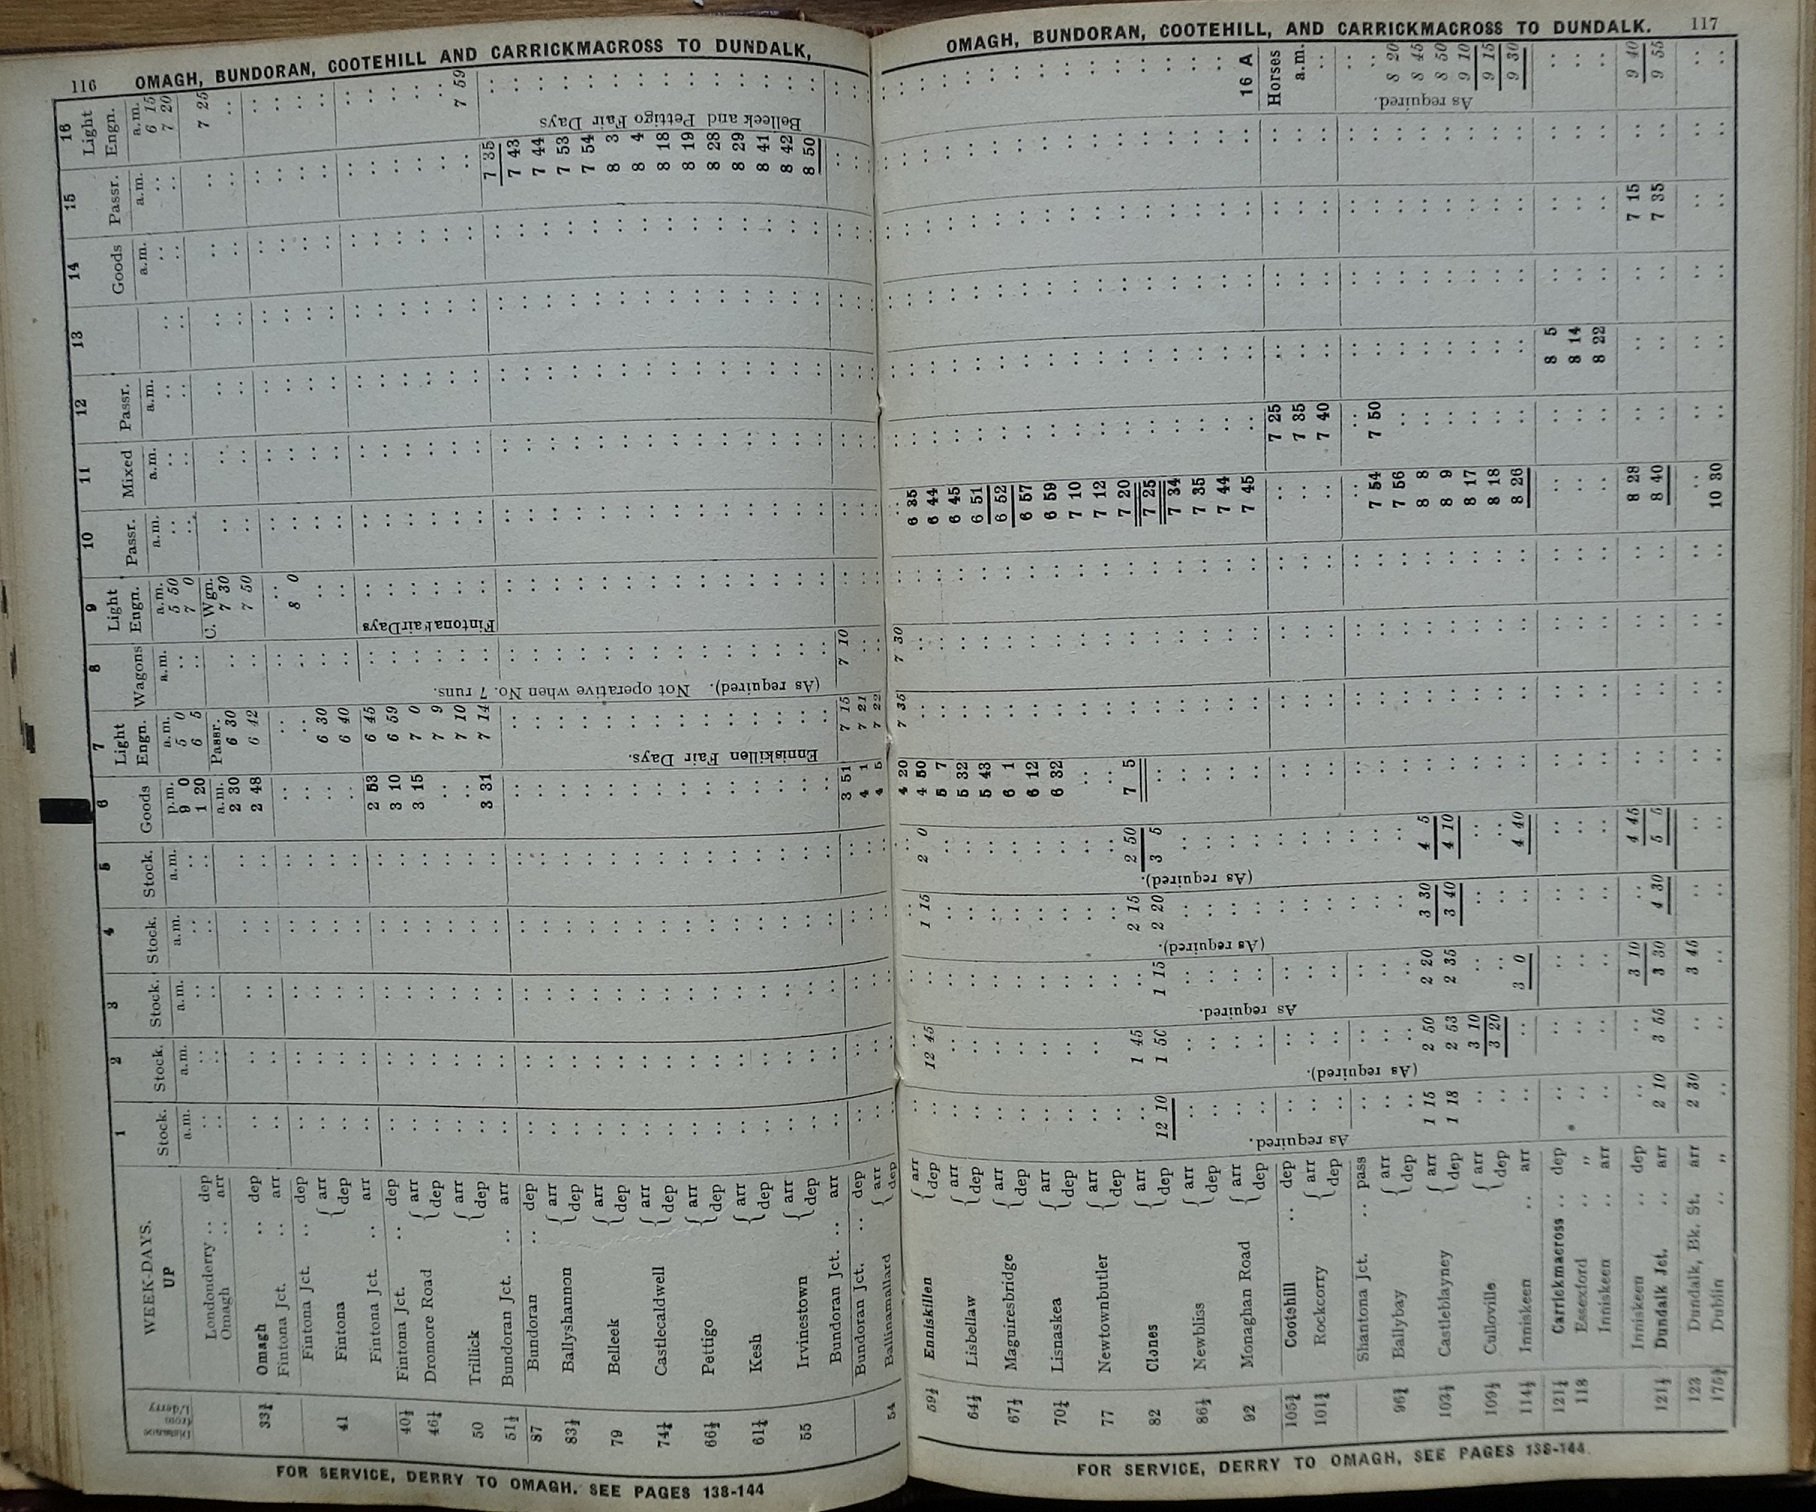 116 OMAGH, BUNDORAN, COOTEHILL AND CARRICKMACROSS TO DUNDALK,
Distance from L'derry
WEEK-DAYS. UP
1 2 3 4 5 6 7 8 9 10 11 12 13 14 15 16
Stock. Stock. Stock. Stock. Stock. Goods Light Engn. Wagons Light Engn. Passr. Mixed Passr. Goods Passr. Light Engn.
a.m. a.m. a.m. a.m. a.m. p.m. a.m. a.m. a.m. a.m. a.m. a.m. a.m. a.m. a.m.
Londonderry .. dep 9 0 5 0 5 50 6 15
Omagh .. arr 1 20 6 5 7 0 7 20
a.m. Passr. C. Wgn.
33¾ Omagh .. dep 2 30 6 30 7 30 7 25
Fintona Jct. arr 2 48 6 42 7 50
Fintona Jct. .. dep
41 Fintona { arr 8 0
dep 6 30
Fintona Jct. .. arr 6 40
40½ Fintona Jct. .. dep 2 53 6 45
46¼ Dromore Road { arr 3 10 6 59
dep 3 15 7 0
50 Trillick { arr 7 9
dep 7 10
51½ Bundoran Jct. .. arr 3 31 7 14 7 59
Fintona Fair Days
87 Bundoran .. dep 7 35
83½ Ballyshannon { arr 7 43
dep 7 44
79 Belleek { arr 7 53
dep 7 54
74¼ Castlecaldwell { arr 8 3
dep 8 4
66½ Pettigo { arr 8 18
dep 8 19
61¼ Kesh { arr 8 28
dep 8 29
55 Irvinestown { arr 8 41
dep 8 42
Bundoran Jct. .. arr 8 50
Enniskillen Fair Days.
(As required). Not operative when No. 7 runs.
Belleek and Pettigo Fair Days
Bundoran Jct. .. dep 3 51 7 15 7 10
54 Ballinamallard { arr 4 1 7 21
dep 4 5 7 22
FOR SERVICE, DERRY TO OMAGH, SEE PAGES 138-144
OMAGH, BUNDORAN, COOTEHILL, AND CARRICKMACROSS TO DUNDALK. 117
59½ Enniskillen { arr 4 20 7 35 7 30
dep 12 45 1 15 2 0 4 50 6 35
64½ Lisbellaw { arr 5 7 6 44
dep 5 32 6 45
67½ Maguiresbridge { arr 5 43 6 51
dep 6 1 6 52
70¾ Lisnaskea { arr 6 12 6 57
dep 6 32 6 59
77 Newtownbutler { arr 7 10
dep 7 12
82 Clones { arr 1 45 2 15 2 50 7 5 7 20
dep 12 10 1 50 1 15 2 20 3 5 7 25
86½ Newbliss { arr 7 34
dep 7 35
92 Monaghan Road { arr 7 44
dep 7 45
16 A
Horses
a.m.
105¾ Cootehill .. dep 7 25
101¾ Rockcorry { arr 7 35
dep 7 40
Shantona Jct. .. pass 7 50
96¾ Ballybay { arr 7 54
dep 7 56 8 20
103½ Castleblayney { arr 1 15 2 50 2 20 3 30 4 5 8 8 8 45
dep 1 18 2 53 2 35 3 40 4 10 8 9 8 50
109½ Culloville { arr 3 10 8 17 9 10
dep 3 20 8 18 9 15
114½ Inniskeen .. arr 3 0 4 40 8 26 9 30
As required.
(As required).
As required.
(As required).
(As required).
As required.
121½ Carrickmacross .. dep 8 5
118 Essexford .. „ 8 14
Inniskeen .. arr 8 22
Inniskeen .. dep 3 10 4 45 8 28 7 15 9 40
121½ Dundalk Jct. .. arr 2 10 3 55 3 30 4 30 5 5 8 40 7 35 9 55
123 Dundalk, Bk. St. arr 2 30 3 45
175¾ Dublin .. „ 10 30
FOR SERVICE, DERRY TO OMAGH, SEE PAGES 138-144